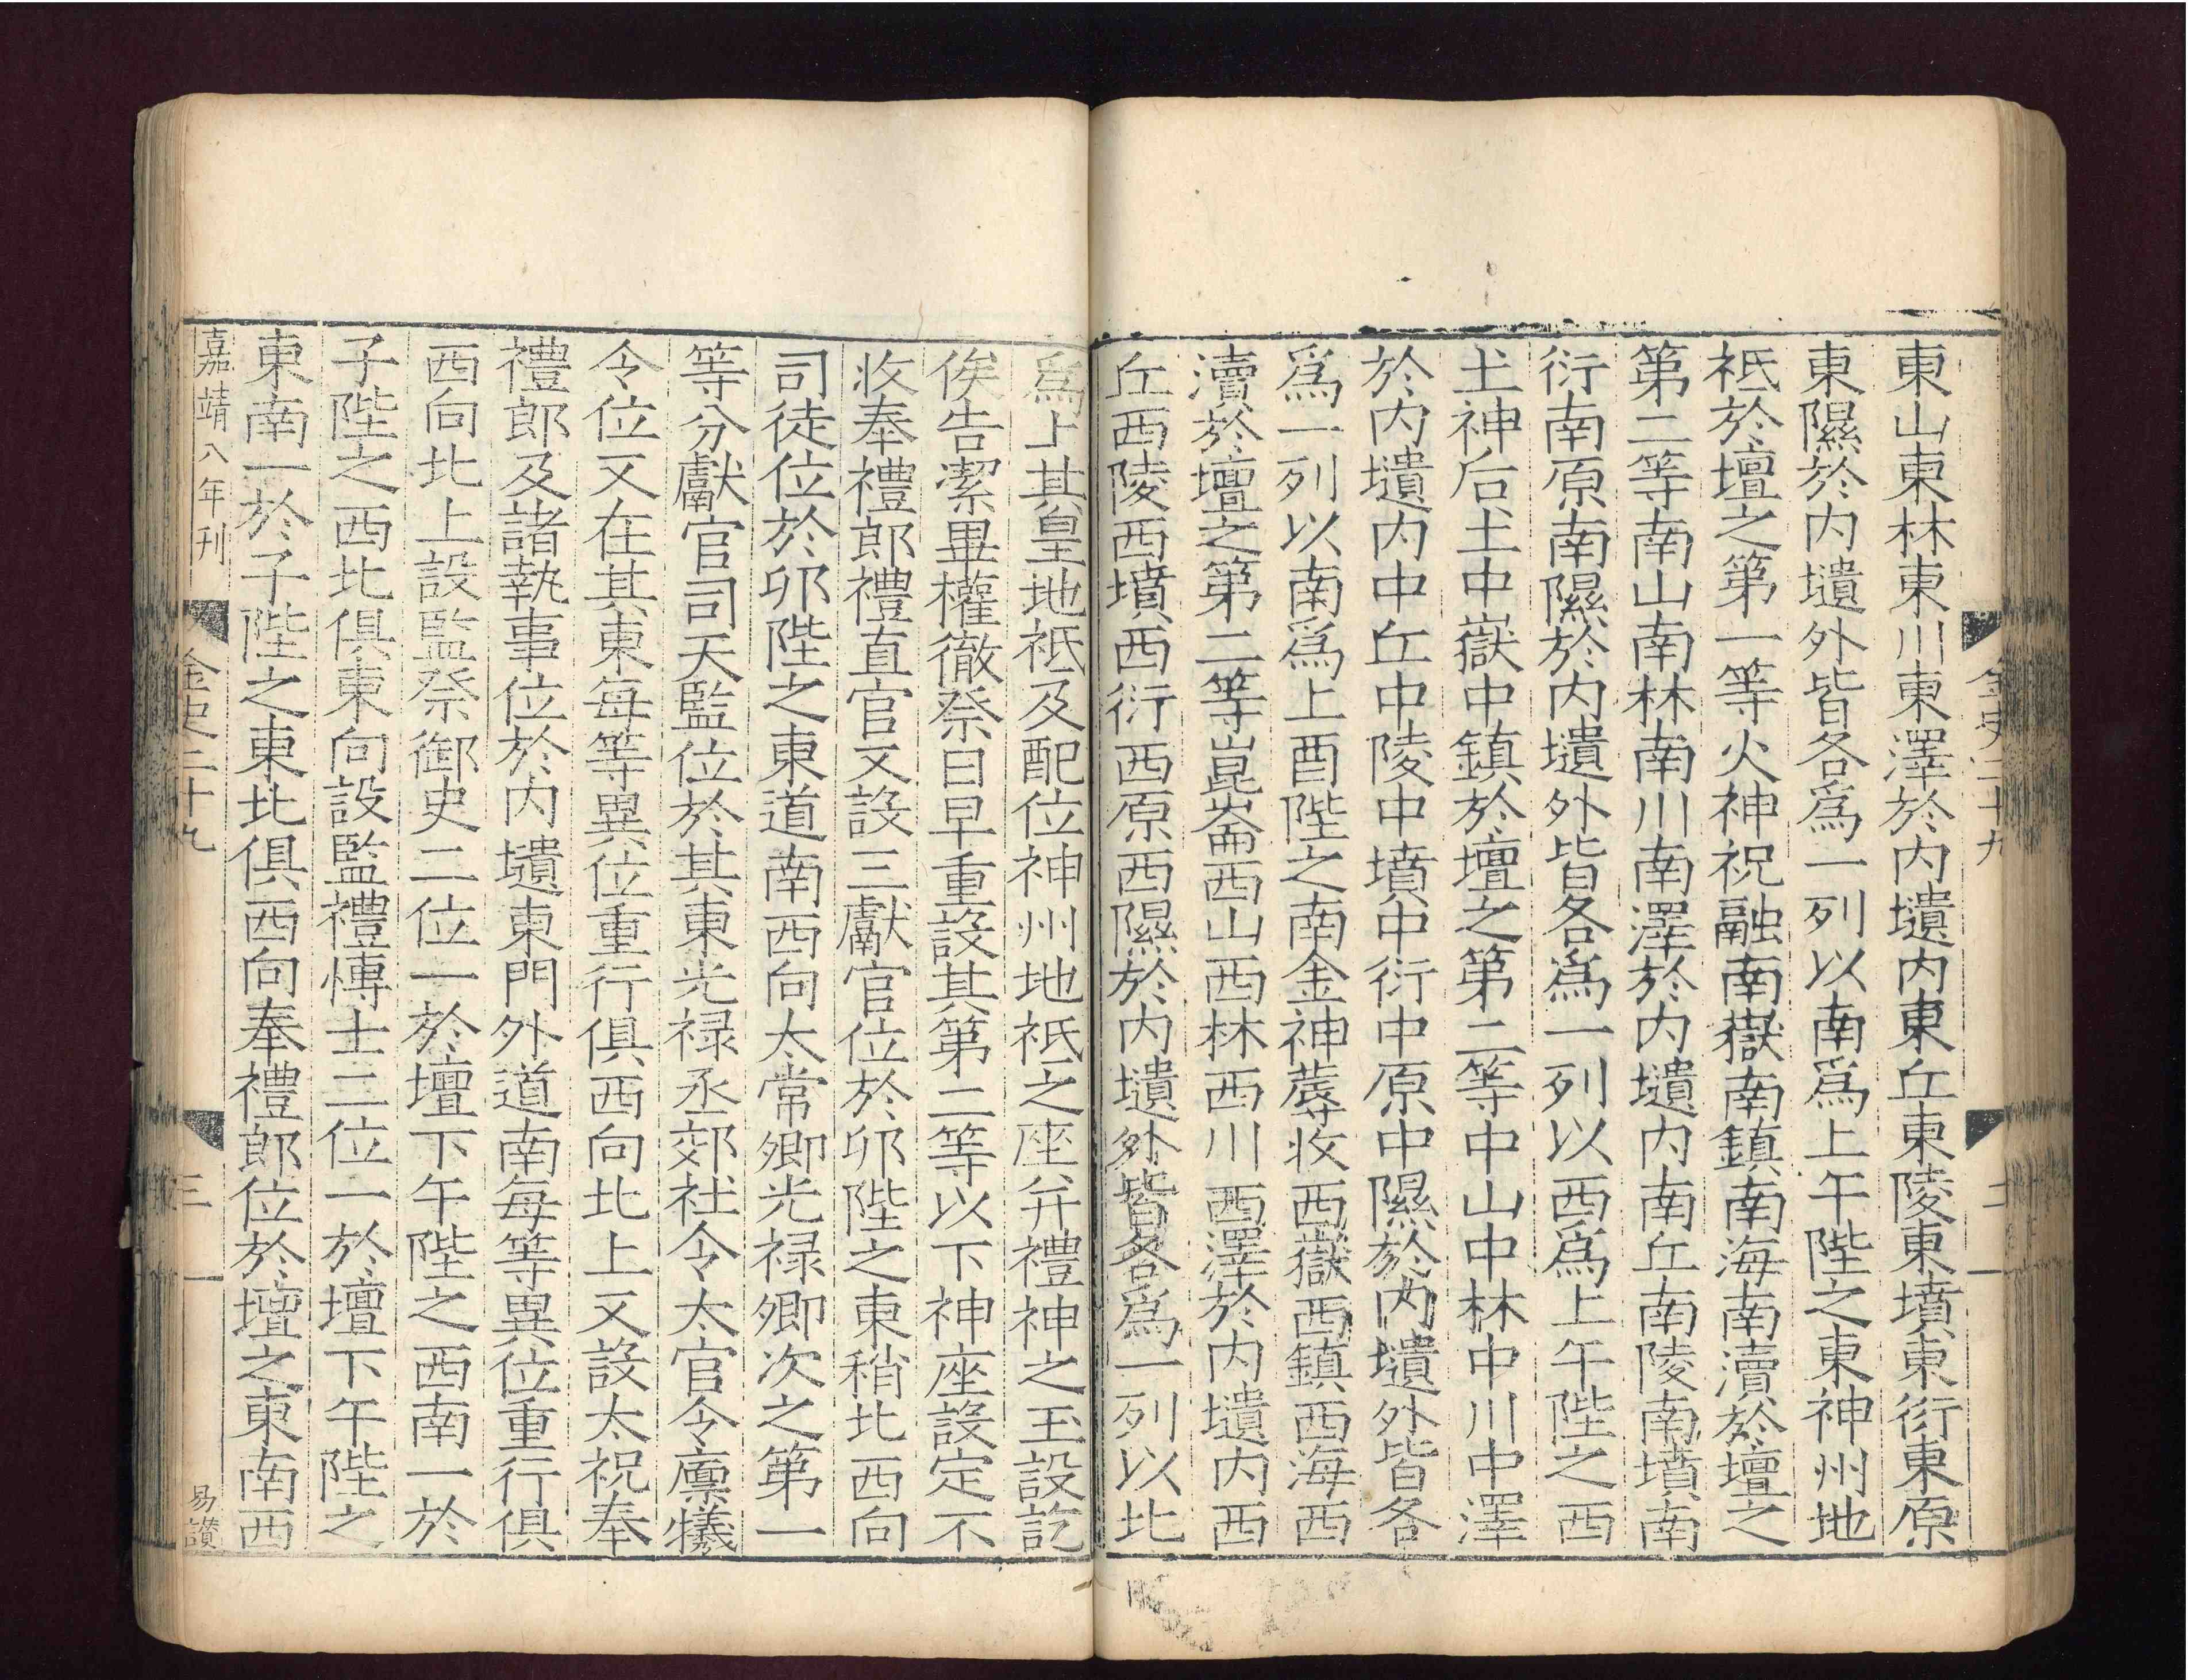 金史二十九
二
東山東林東川東澤於内壝内東丘東陵東墳東衍東原
東隰於内壝外皆各爲一列以南爲上午陛之東神州地
祇於壇之第一等火神祝融南嶽南鎮南海南瀆於壇之
第二等南山南林南川南澤於内壝内南丘南陵南墳南
衍南原南隰於内壝外皆各爲一列以西爲上午陛之西
土神后土中嶽中鎮於壇之第二等中山中林中川中澤
於内壝内中丘中陵中墳中衍中原中隰於内壝外皆各
爲一列以南爲上酉陛之南金神蓐收西嶽西鎮西海西
瀆於壇之第二等崑崙西山西林西川西澤於内壝内西
丘西陵西墳西衍西原西隰於内壝外皆各爲一列以北
爲上其皇地祇及配位神州地祇之座幷禮神之玉設訖
俟告潔畢權徹祭日早重設其第二等以下神座設定不
收奉禮郎禮直官又設三獻官位於卯陛之東稍北西向
司徒位於卯陛之東道南西向太常卿光禄卿次之第一
等分獻官司天監位於其東光禄丞郊社令太官令廩犧
令位又在其東每等異位重行俱西向北上又設太祝奉
禮郎及諸執事位於内壝東門外道南每等異位重行俱
西向北上設監祭御史二位一於壇下午陛之西南一於
子陛之西北俱東向設監禮博士二位一於壇下午陛之
東南一於子陛之東北俱西向奉禮郎位於壇之東南西
嘉靖八年刊
金史二十九
三
易讚